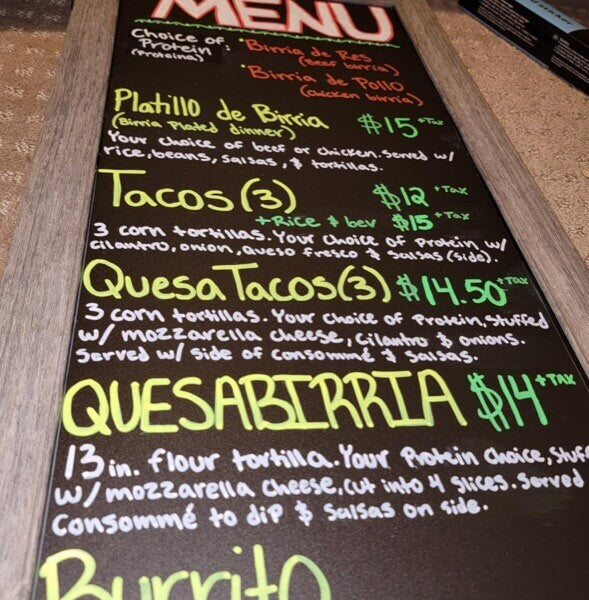 MENU
Choice of Protein: (Proteina)
• Birria de Res
(Beef birria)
• Birria de Pollo
(Chicken birria)
Platillo de Birria $15 +Tax
(Birria Plated dinner)
Your choice of beef or chicken. Served w/
rice, beans, salsas, & tortillas.
Tacos (3) $12 +Tax
+Rice & bev $15 +Tax
3 corn tortillas. Your choice of Protein w/
cilantro, onion, queso fresco & salsas (side).
QuesaTacos (3) $14.50 +Tax
3 corn tortillas. Your choice of Protein, stuffed
w/ mozzarella cheese, cilantro & onions.
Served w/ side of consommé & salsas.
QUESABIRRIA $14 +TAX
13 in. flour tortilla. Your Protein choice, stuff
w/ mozzarella cheese, cut into 4 slices. Served
Consommé to dip & Salsas on side.
Burrito